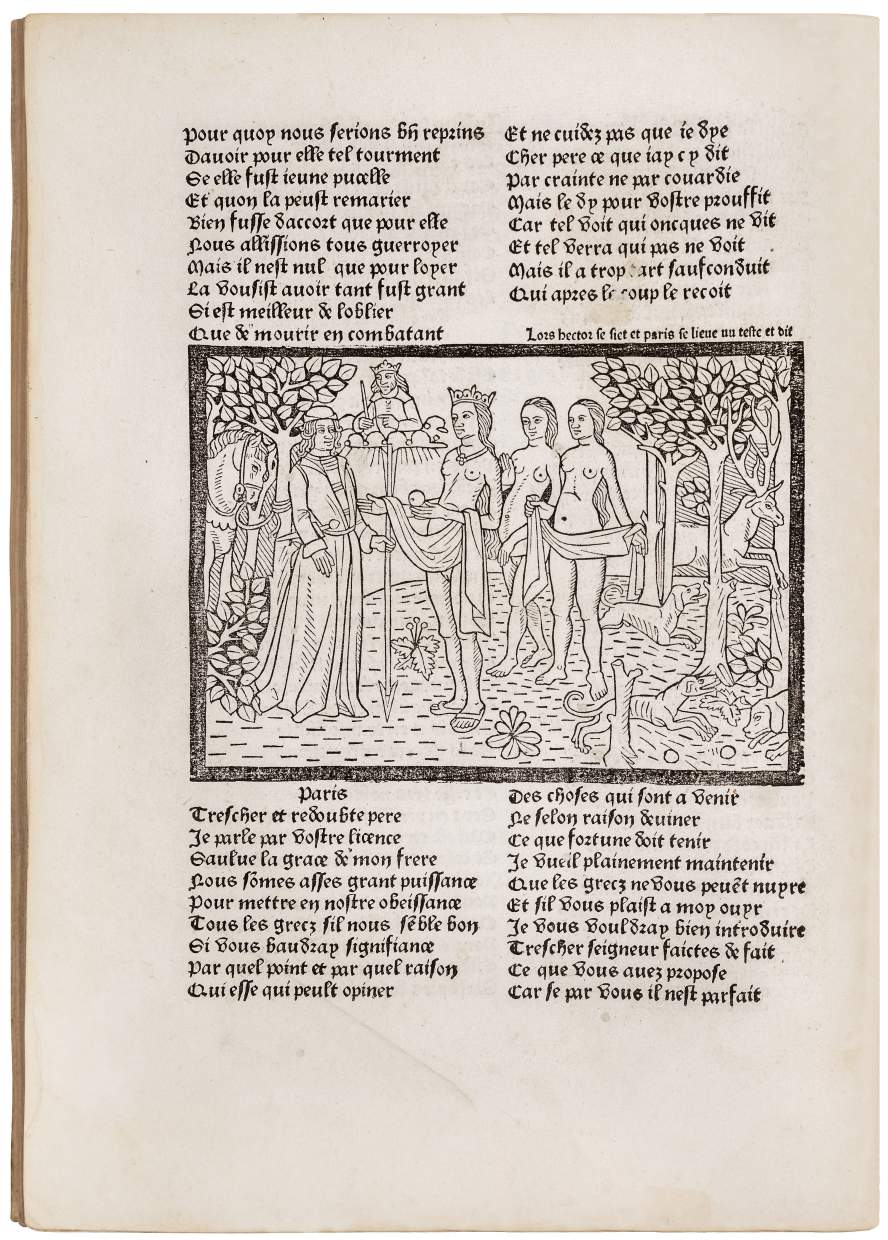 Pour quoy nous serions bñ reprins
Dauoir pour elle tel tourment
Se elle fust ieune pucelle
Et quon la peust remarier
Bien fusse daccort que pour elle
Nous allissions tous guerroyer
Mais il nest nul que pour loyer
La vousist auoir tant fust grant
Si est meilleur de loblier
Que de mourir en combatant
Et ne cuidez pas que ie dye
Cher pere ce que iay cy dit
Par crainte ne par couardie
Mais le dy pour vostre prouffit
Car tel voit qui oncques ne vit
Et tel verra qui pas ne voit
Mais il a trop art saufconduit
Qui apres le coup le recoit
Lors hector se siet et paris se lieue nu teste et dit
Paris
Trescher et redoubte pere
Je parle par vostre licence
Saulue la grace de mon frere
Nous sõmes asses grant puissance
Pour mettre en nostre obeissance
Tous les grecz sil nous sẽble bon
Si vous baudray signifiance
Par quel point et par quel raison
Qui esse qui peult opiner
Des choses qui sont a venir
Ne selon raison deuiner
Ce que fortune doit tenir
Je vueil plainement maintenir
Que les grecz ne vous peuẽt nuyre
Et sil vous plaist a moy ouyr
Je vous vouldray bien introduire
Trescher seigneur faictes de fait
Ce que vous auez propose
Car se par vous il nest parfait